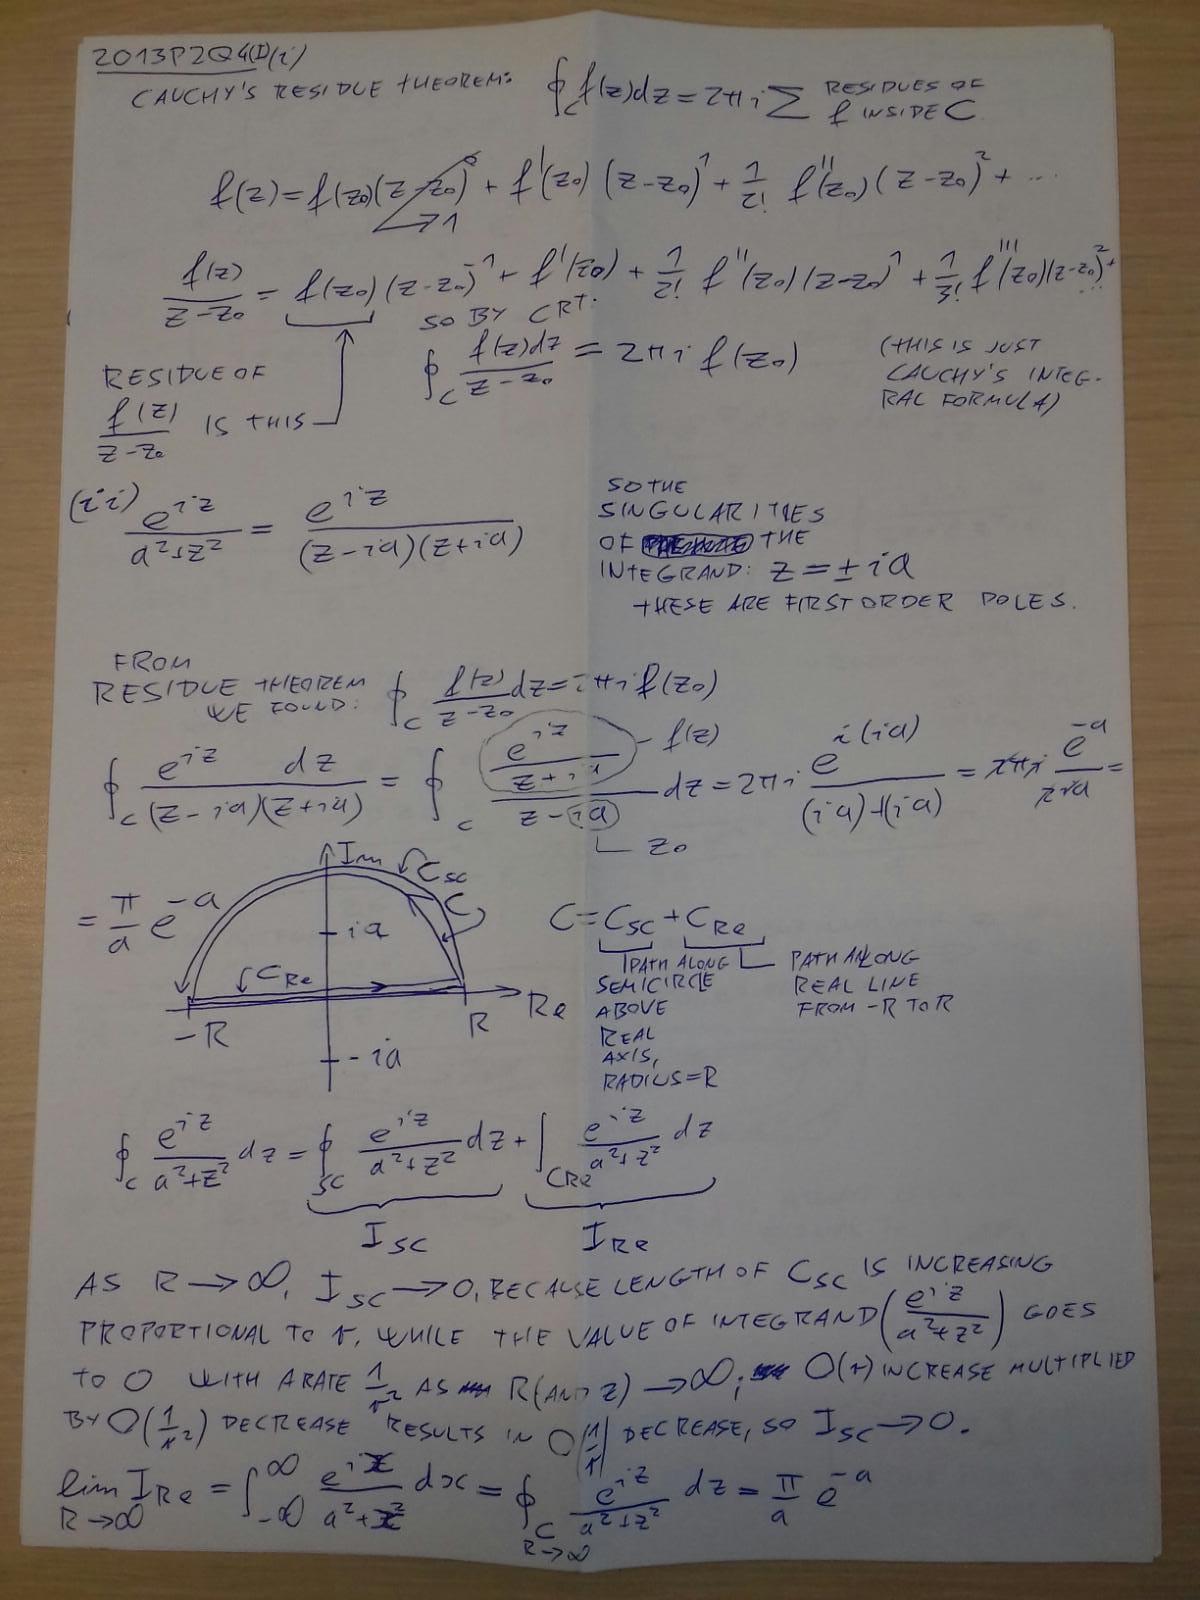 2013P2Q4(I)(i)
CAUCHY'S RESIDUE THEOREM: ∮_C f(z)dz = 2πi ∑ RESIDUES OF f INSIDE C
f(z) = f(z₀)(z-z₀)⁰ + f'(z₀)(z-z₀)¹ + 1/2! f''(z₀)(z-z₀)² + ...
→ 1
f(z)/(z-z₀) = f(z₀)(z-z₀)⁻¹ + f'(z₀) + 1/2! f''(z₀)(z-z₀)¹ + 1/3! f'''(z₀)(z-z₀)² + ...
SO BY CRT:
RESIDUE OF f(z)/(z-z₀) IS THIS
∮_C f(z)dz/(z-z₀) = 2πi f(z₀)
(THIS IS JUST
CAUCHY'S INTEG-
RAL FORMULA)
(ii) e^{iz}/(a²+z²) = e^{iz}/((z-ia)(z+ia))
SO THE
SINGULARITIES
OF THE
INTEGRAND: z = ±ia
THESE ARE FIRST ORDER POLES.
FROM
RESIDUE THEOREM
WE FOUND: ∮_C f(z)/(z-z₀) dz = 2πi f(z₀)
∮_C e^{iz} dz/((z-ia)(z+ia)) = ∮_C (e^{iz}/(z+ia))/(z-ia) dz = 2πi e^{i(ia)}/((ia)+(ia)) = 2πi e^{-a}/2ia =
f(z)
z₀
= π/a e^{-a}
Im
C_SC
C
ia
C_Re
-R
R
Re
-ia
C = C_SC + C_Re
PATH ALONG
SEMICIRCLE
ABOVE
REAL
AXIS,
RADIUS=R
PATH ALONG
REAL LINE
FROM -R TO R
∮_C e^{iz}/(a²+z²) dz = ∮_SC e^{iz}/(a²+z²) dz + ∫_CRe e^{iz}/(a²+z²) dz
I_SC
I_Re
AS R → ∞, I_SC → 0, BECAUSE LENGTH OF C_SC IS INCREASING
PROPORTIONAL TO r, WHILE THE VALUE OF INTEGRAND (e^{iz}/(a²+z²)) GOES
TO 0 WITH A RATE 1/r² AS R(AND z) → ∞; O(r) INCREASE MULTIPLIED
BY O(1/r²) DECREASE RESULTS IN O(1/r) DECREASE, SO I_SC → 0.
lim_{R→∞} I_Re = ∫_{-∞}^{∞} e^{ix}/(a²+x²) dx = ∮_{C R→∞} e^{iz}/(a²+z²) dz = π/a e^{-a}